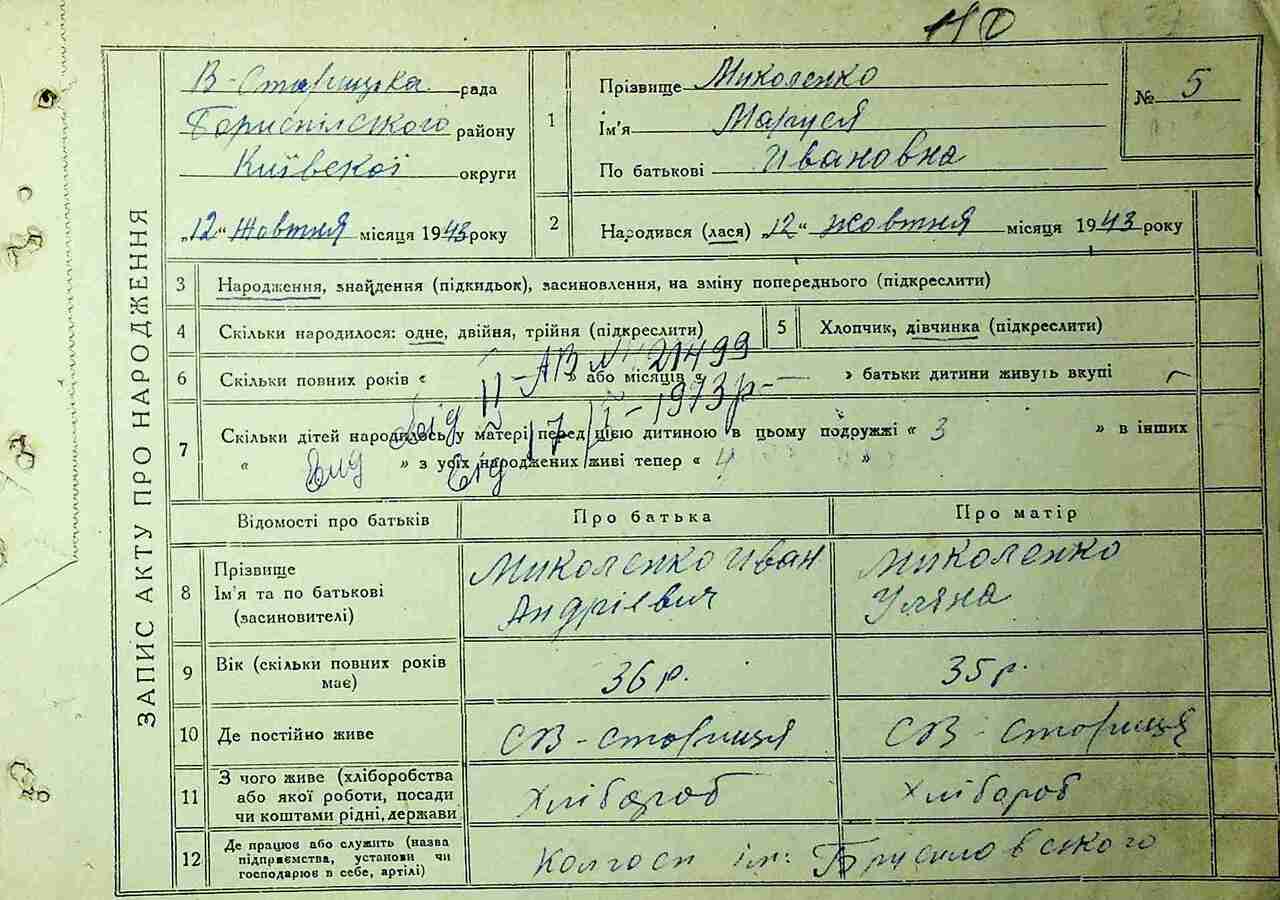 ЗАПИС АКТУ ПРО НАРОДЖЕННЯ
В-Старицька рада
Бориспілського району
Київскої округи
„12“ Жовтня місяця 1943 року
1
Прізвище Миколенко
Ім'я Маруся
По батькові Ивановна
№ 5
2
Народився (лася) „12“ жовтня місяця 1943 року
3 Народження, знайдення (підкидьок), засиновлення, на зміну попереднього (підкреслити)
4 Скільки народилося: одне, двійня, трійня (підкреслити)
5 Хлопчик, дівчинка (підкреслити)
II-АВ № 21499
6 Скільки повних років « — » або місяців « — » батьки дитини живуть вкупі
від 17/I-1973р-
7 Скільки дітей народилось у матері перед цією дитиною в цьому подружжі « 3 » в інших
« » з усіх народжених живі тепер « 4 »
Відомості про батьків
Про батька
Про матір
8 Прізвище
Ім'я та по батькові
(засиновителі)
Миколенко Иван
Андрієвич
Миколенко
Уляна
9 Вік (скільки повних років
має)
36 р.
35 р.
10 Де постійно живе
СВ-Стариця
СВ-Стариця
11 З чого живе (хліборобства
або якої роботи, посади
чи коштами рідні, держави
Хлібороб
Хлібороб
12 Де працює або служить (назва
підприємства, установи чи
господарює в себе, артілі)
Колгосп ім: